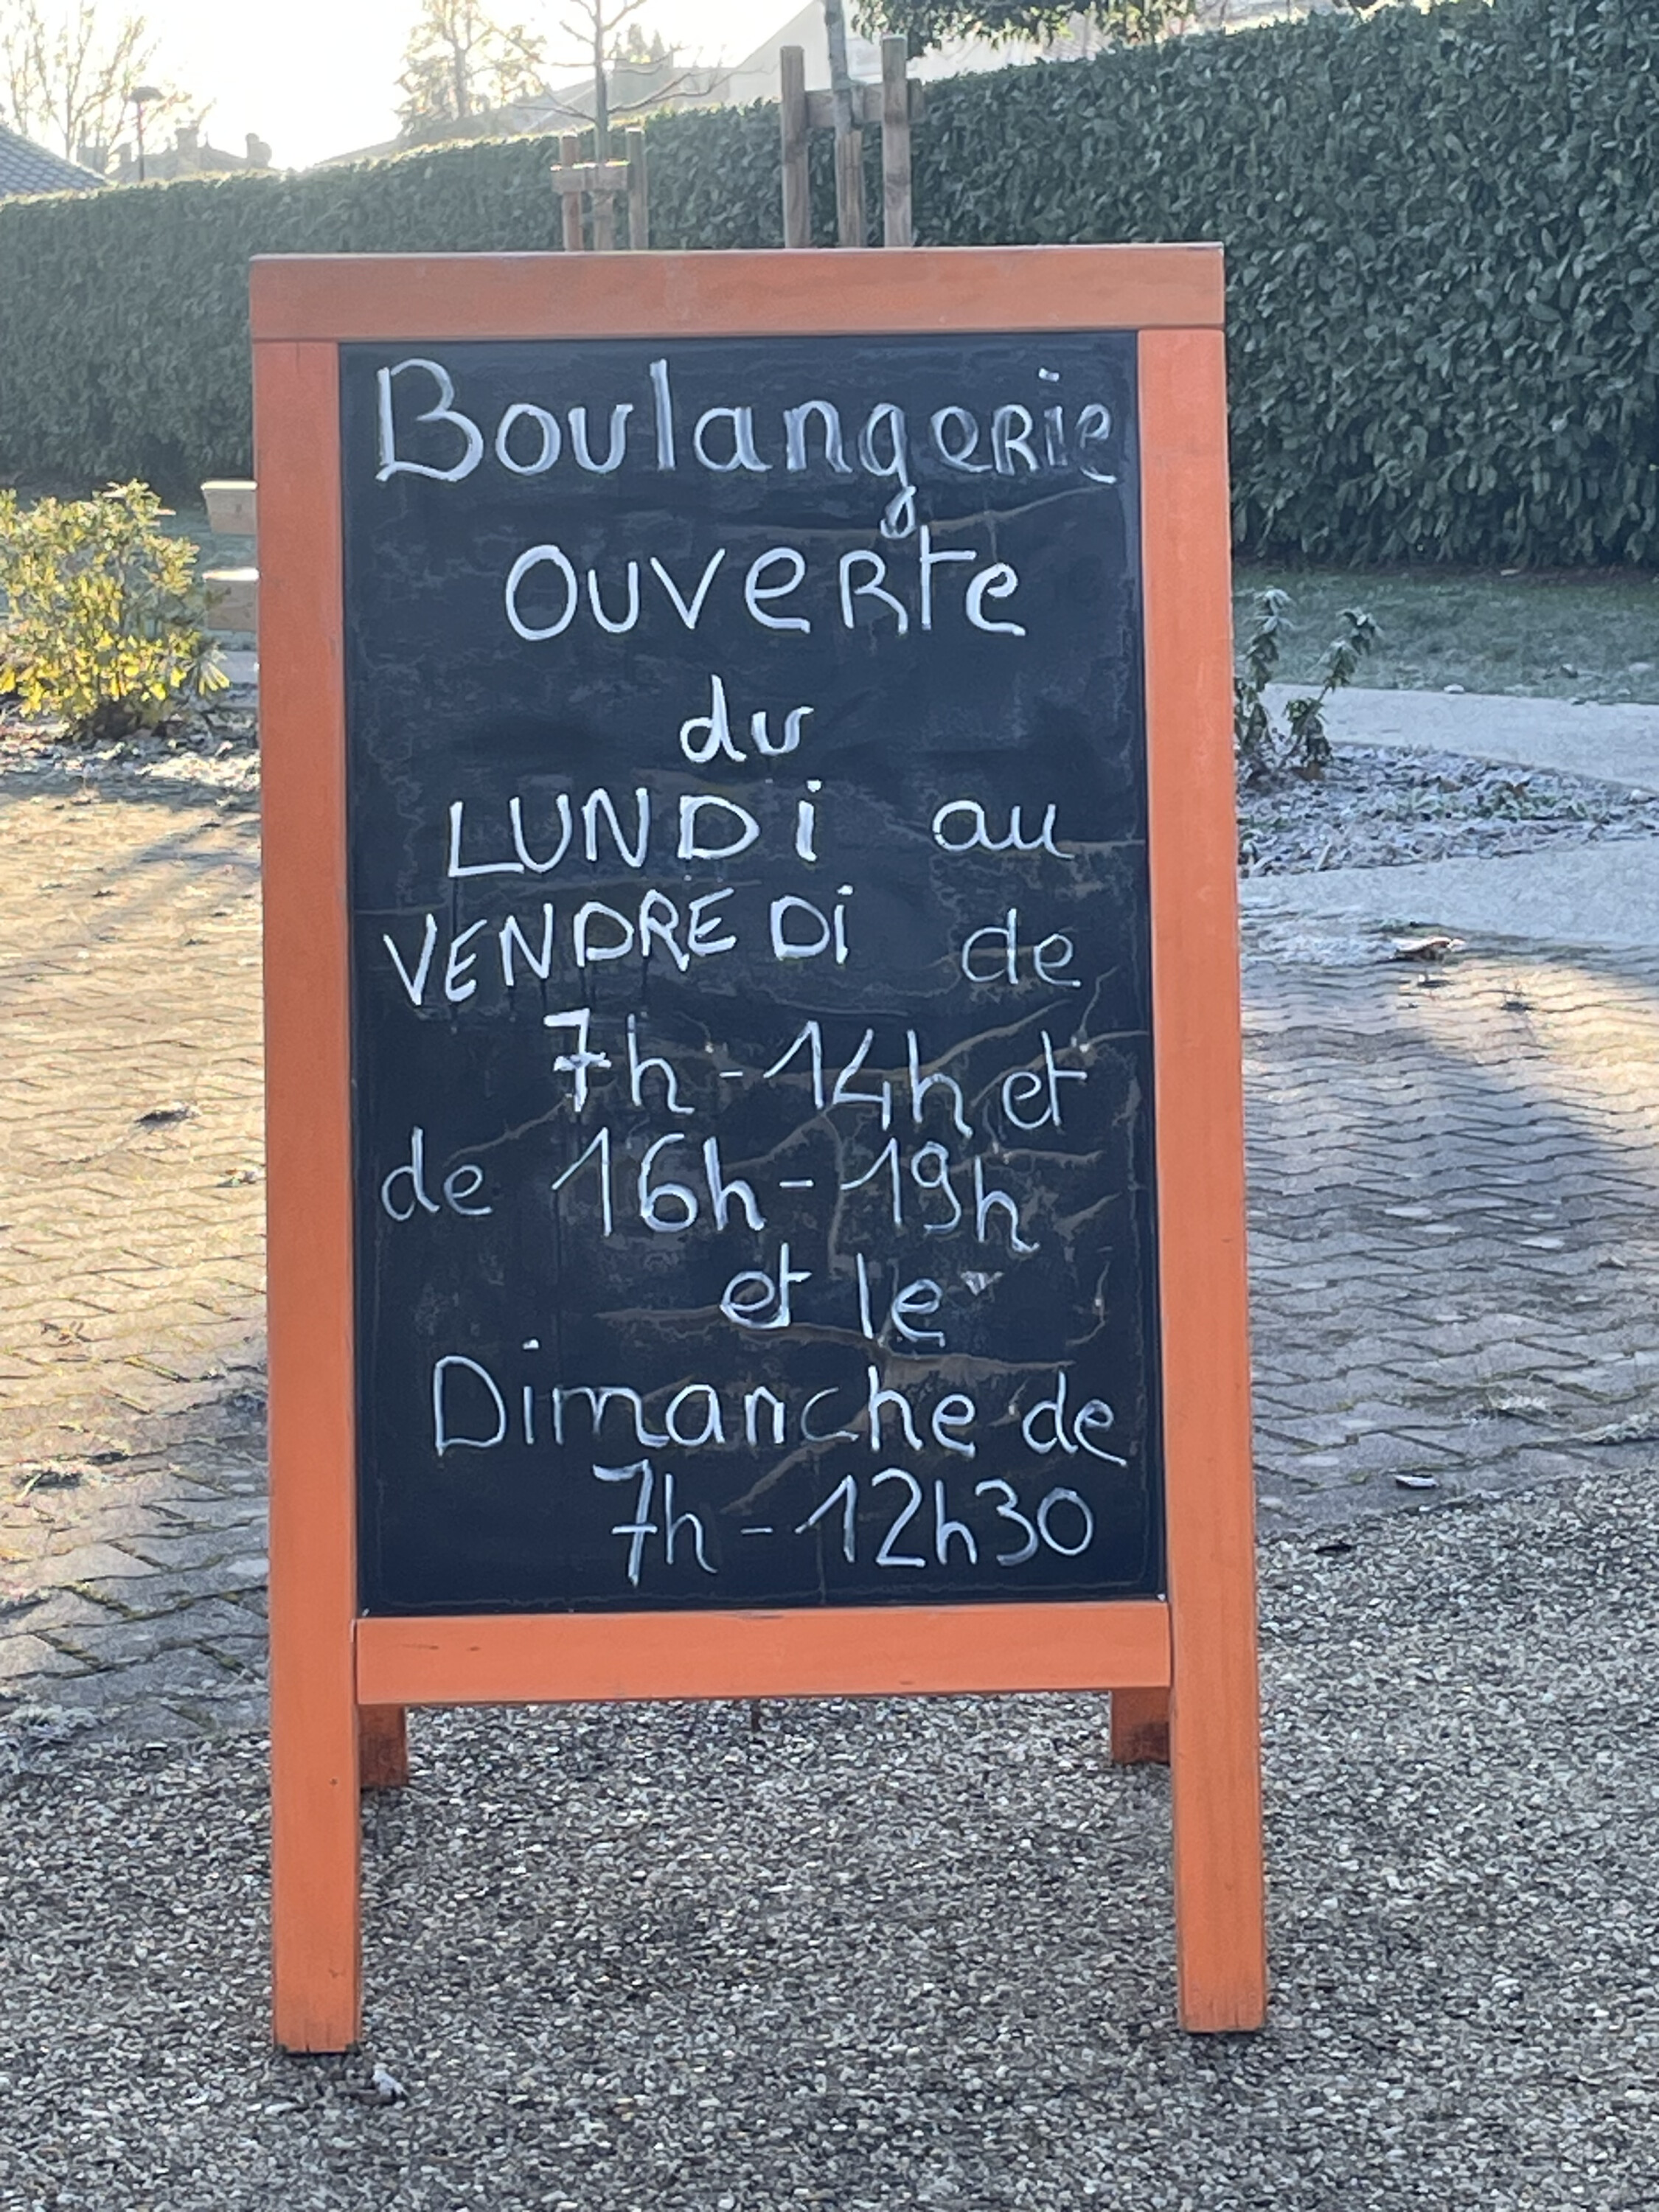 Boulangerie
Ouverte
du
LUNDi au
VENDREDi de
7h-14h et
de 16h-19h
et le
Dimanche de
7h-12h30